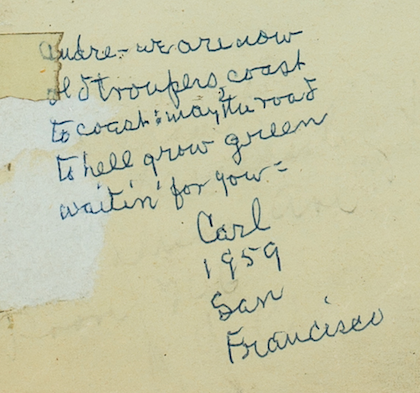 Andre - we are now
old troupers, coast
to coast: may the road
to hell grow green
waitin' for you =
Carl
1959
San
Francisco